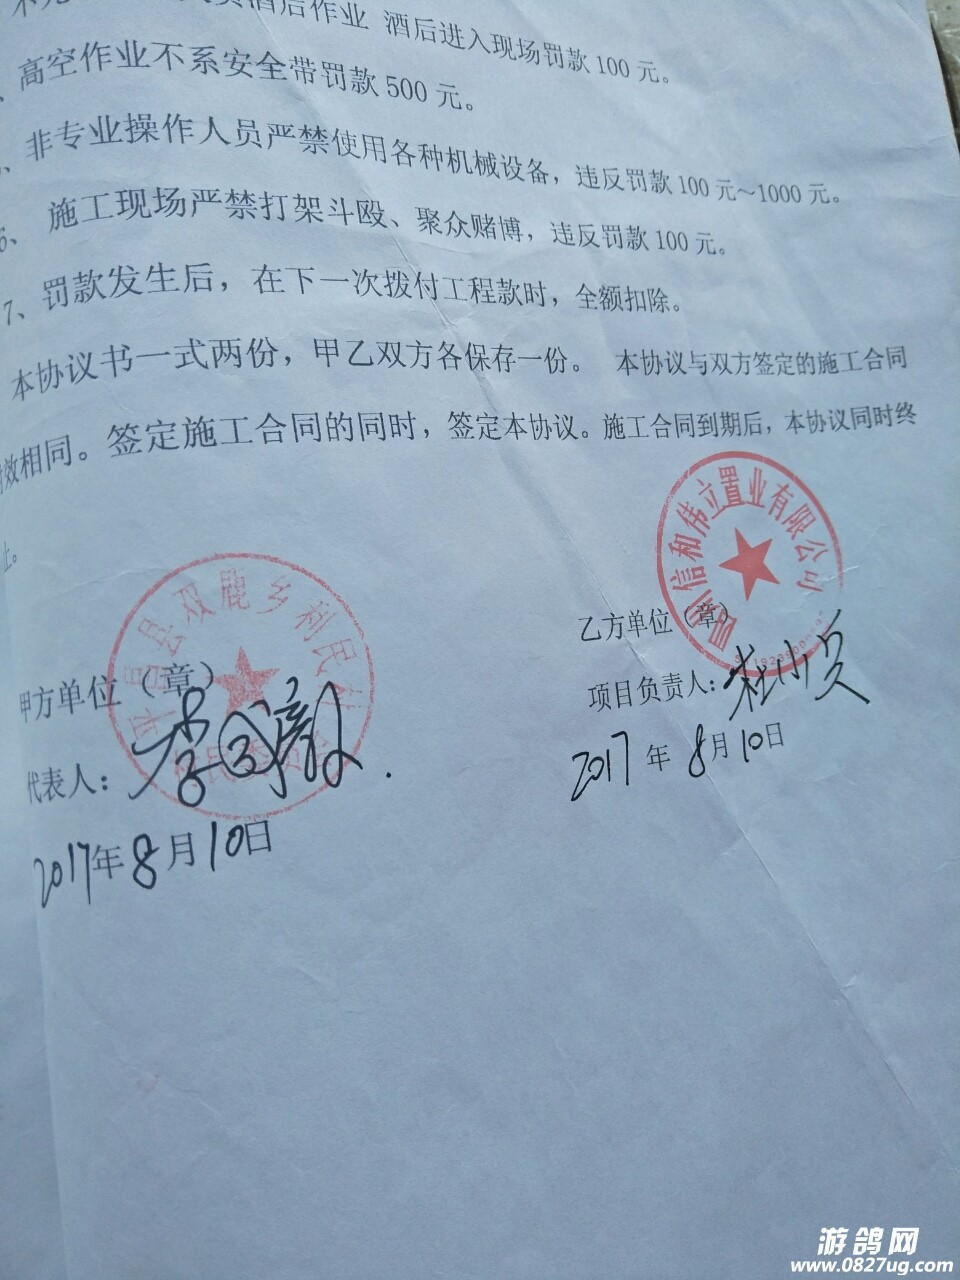 酒后作业 酒后进入现场罚款100元。
高空作业不系安全带罚款500元。
、非专业操作人员严禁使用各种机械设备，违反罚款100元～1000元。
6、施工现场严禁打架斗殴、聚众赌博，违反罚款100元。
7、罚款发生后，在下一次拨付工程款时，全额扣除。
本协议书一式两份，甲乙双方各保存一份。 本协议与双方签定的施工合同
效相同。签定施工合同的同时，签定本协议。施工合同到期后，本协议同时终
止。
平昌县双鹿乡利民村
甲方单位（章）
代表人：李国毅
2017年8月10日
四川信和伟立置业有限公司
乙方单位（章）
项目负责人：杜小兵
2017年8月10日
游鸽网
www.0827ug.com